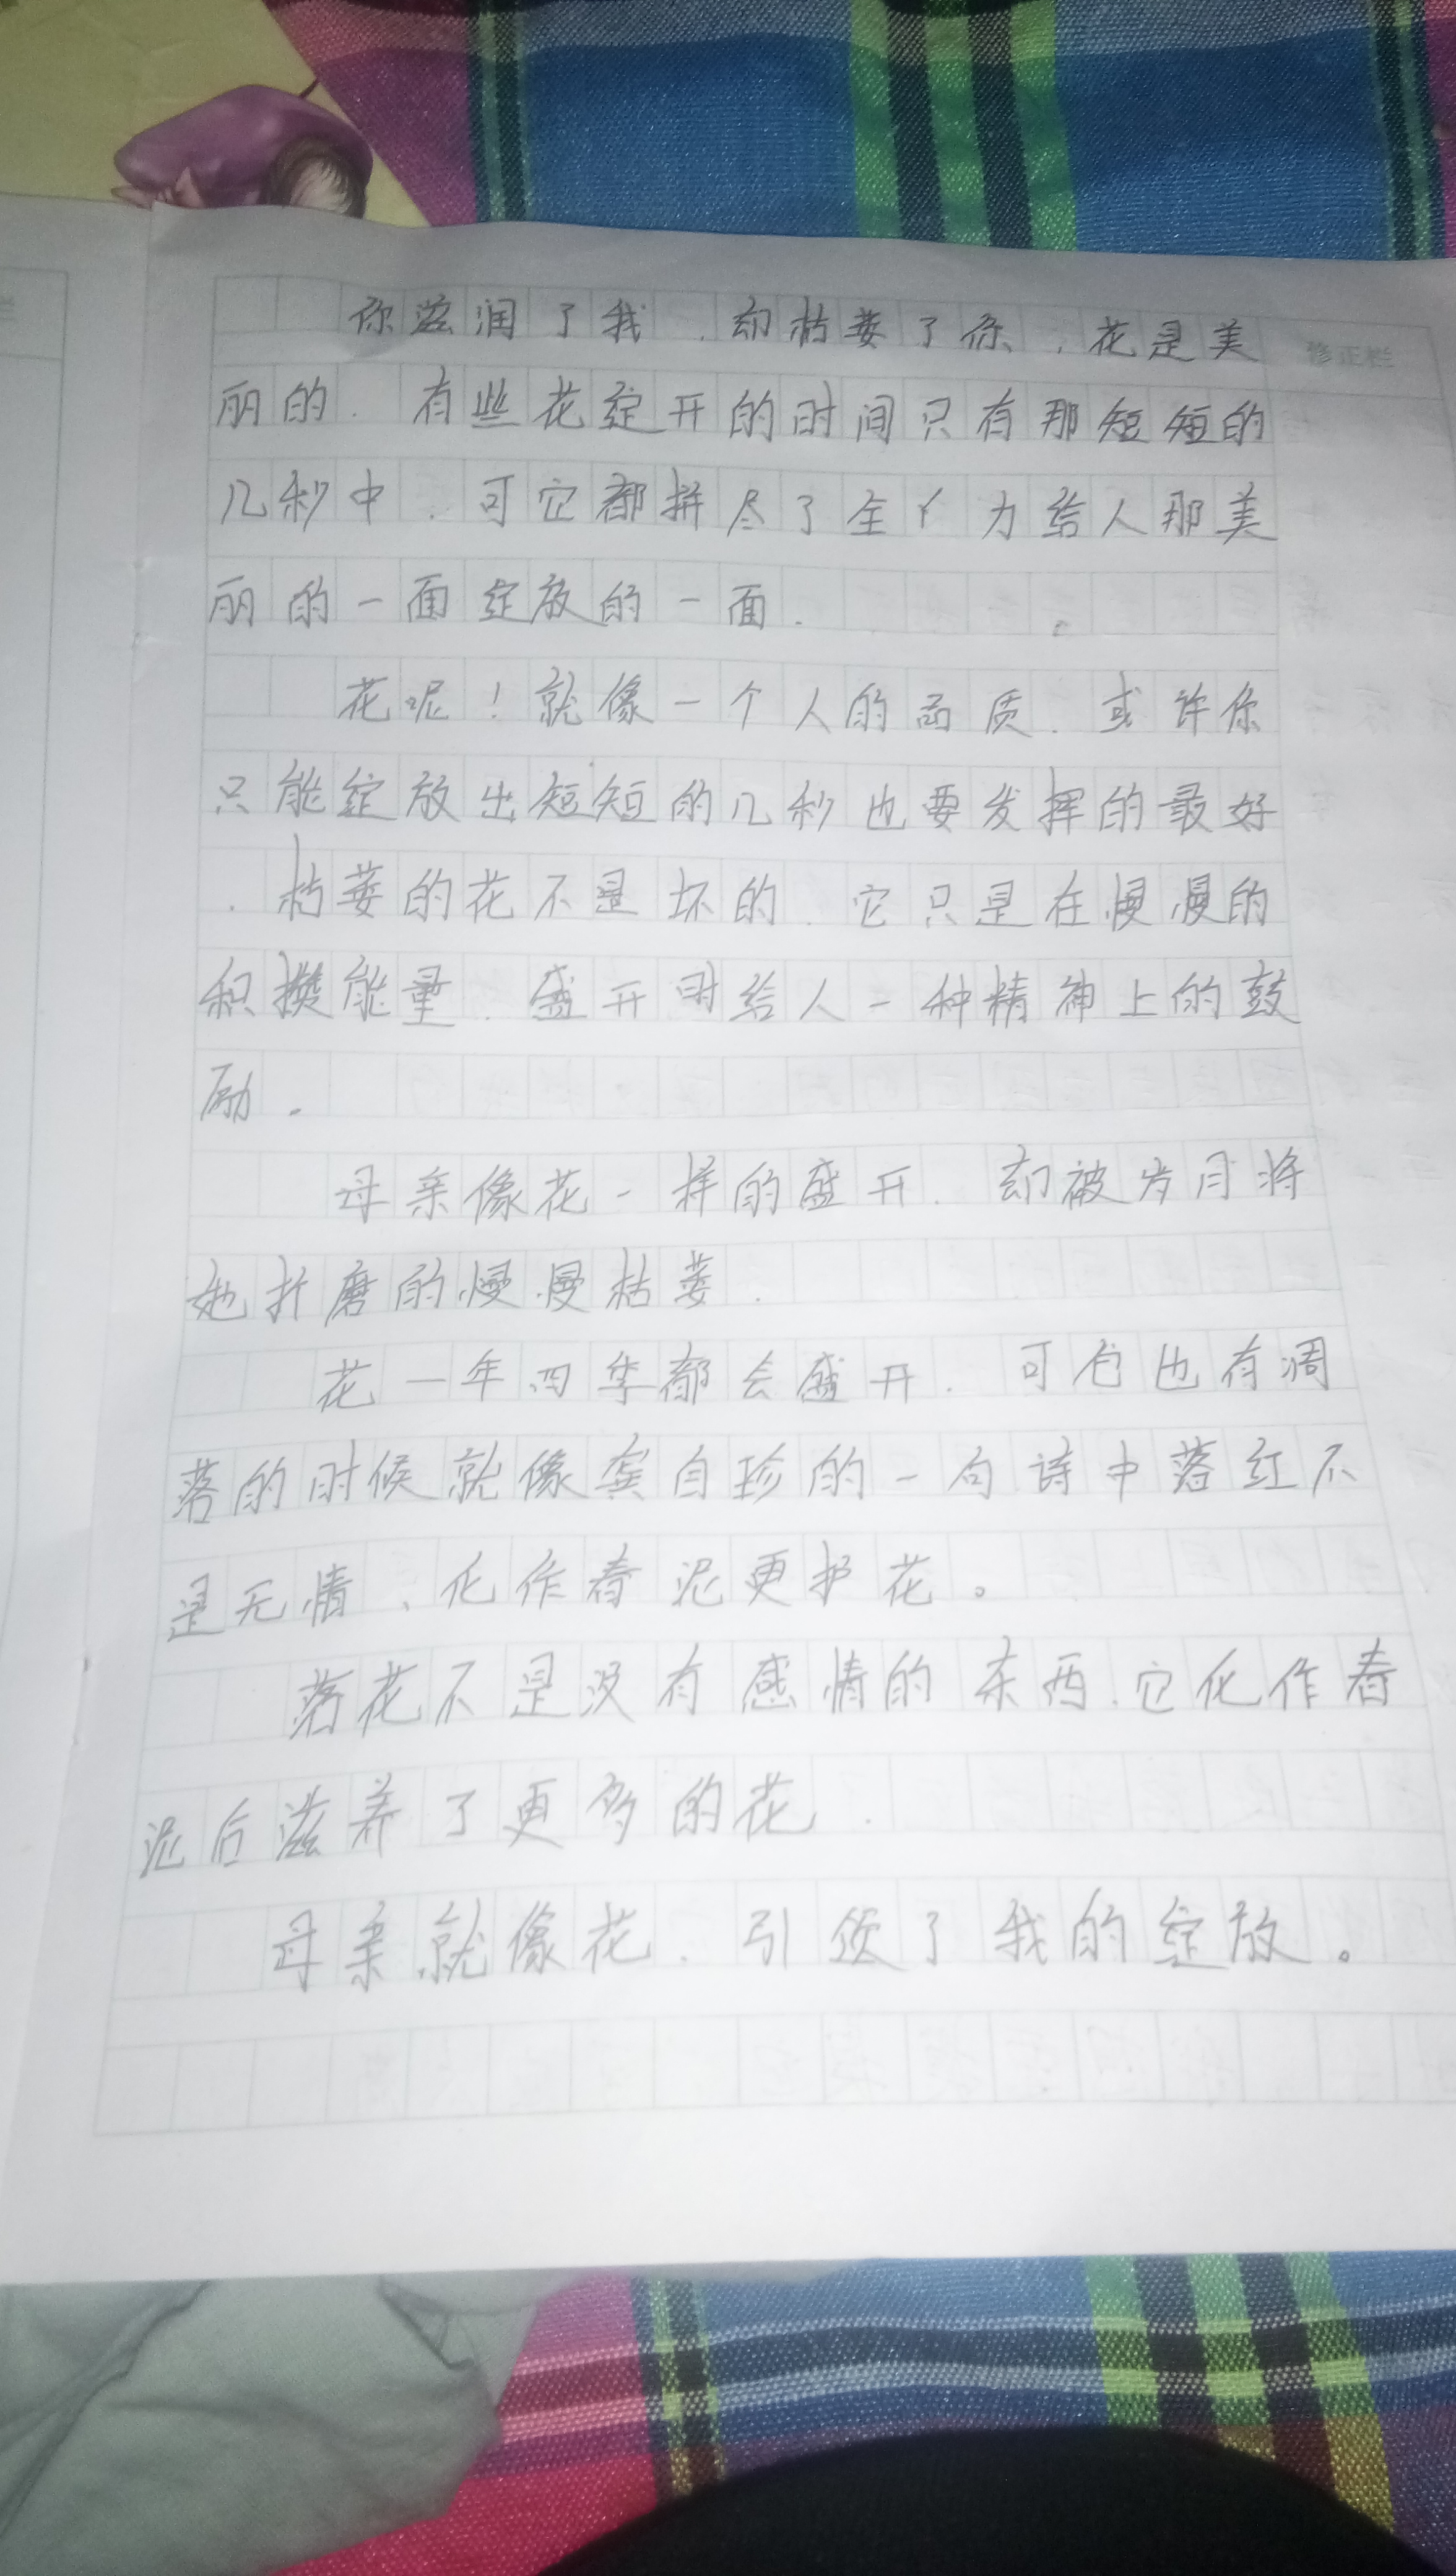 你滋润了我.却枯萎了你,花是美
修正栏
丽的.有些花绽开的时间只有那短短的
几秒中.可它都拼尽了全亻力给人那美
丽的一面绽放的一面.
花呢!就像一个人的品质.或许你
只能绽放出短短的几秒也要发挥的最好
.枯萎的花不是坏的.它只是在慢慢的
积攒能量.盛开时给人一种精神上的鼓
励.
母亲像花一样的盛开.却被岁月将
她折磨的慢慢枯萎.
花一年四季都会盛开.可它也有凋
落的时候就像龚自珍的一句诗中落红不
是无情、化作春泥更护花。
落花不是没有感情的东西.它化作春
泥后滋养了更多的花.
母亲就像花.引领了我的绽放。